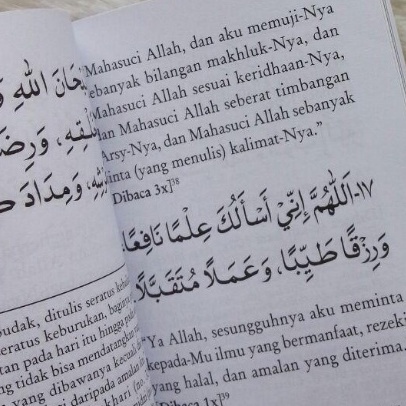 Mahasuci Allah, dan aku memuji-Nya
sebanyak bilangan makhluk-Nya, dan
Mahasuci Allah sesuai keridhaan-Nya,
dan Mahasuci Allah seberat timbangan
Arsy-Nya, dan Mahasuci Allah sebanyak
tinta (yang menulis) kalimat-Nya.”
Dibaca 3x]³⁸
١٧-اَللَّهُمَّ إِنِّيْ أَسْأَلُكَ عِلْمًا نَافِعًا،
وَرِزْقًا طَيِّبًا، وَعَمَلًا مُتَقَبَّلًا
“Ya Allah, sesungguhnya aku meminta
kepada-Mu ilmu yang bermanfaat, rezeki
yang halal, dan amalan yang diterima.
[Dibaca 1x]³⁹
اللهِ
وَرِضَ
وَمِدَادَ
budak, ditulis seratus
seratus keburukan,
pada hari itu hingga
tidak bisa mendatangkan
yang dibawanya kecuali
daripada amalan